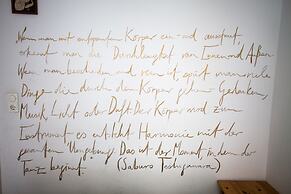 Wenn man mit entspanntem Körper ein- und ausatmet
erkennt man die Durchlässigkeit von Innen und Außen.
Wenn man bescheiden und rein ist, spürt man viele
Dinge die durch den Körper gehen. Gedanken,
Musik, Licht oder Duft. Der Körper wird zum
Instrument, es entsteht Harmonie mit der
gesamten Umgebung. Das ist der Moment, in dem der
Tanz beginnt. (Saburo Teshigawara)